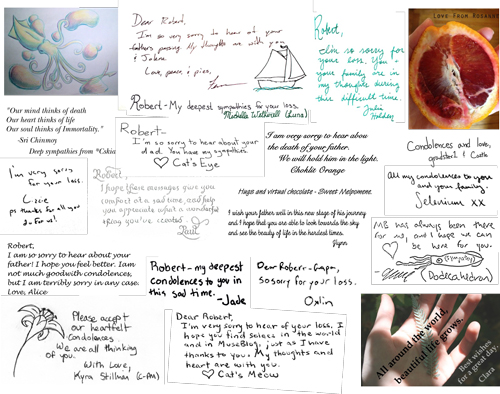 Dear Robert,
I'm so very sorry to hear of your
fathers passing. My thoughts are with you
& Jolene.
Love, peace, & pies,
Robert-My deepest sympathies for your loss.
Michelle Witherell (Luna)
Robert,
I'm so sorry for
your loss. You &
your family are in
my thoughts during
this difficult time.
Julia
Holden
LOVE FROM ROSANNE
"Our mind thinks of death
Our heart thinks of life
Our soul thinks of Immortality."
-Sri Chinmoy
Deep sympathies from *Cskia
Robert-
I'm so sorry to hear about your
dad. You have my sympathies.
♡ Cat's Eye
I am very sorry to hear abou
the death of your father.
We will hold him in the light.
Choklit Orange
Condolences and love,
& Castle
I'm very sorry
for your loss.
Lizzie
ps thanks for all you
do for us!
Robert,
I hope these messages give you
comfort at a sad time, and help
you appreciate what a wonderful
thing you've created.
Hugs and virtual chocolate - Sweet Melpomene.
I wish your father well in this new stage of his journey
and I hope that you are able to look towards the sky
and see the beauty of life in the hardest times.
All my condolences to you
and your family.
Selenium XX
MB has always been there
for me, and I hope we can
be here for you.
(Sympathy)
(Dodecahedron)
Robert,
I am so sorry to hear about your
father! I hope you feel better. I am
not much good with condolences,
but I am terribly sorry in any case.
Love, Alice
Robert-my deepest
condolences to you in
this sad time.
-Jade
Dear Robert-Gapa,
So sorry for your loss.
Oxlin
Please accept
our heartfelt
condolences.
We are all thinking
of you.
With Love,
Kyra Stillman (C-PM)
Dear Robert,
I'm very sorry to hear of your loss. I
hope you find solace in the world
and in MuseBlog, just as I have
thanks to you. My thoughts and
heart are with you.
♡ Cat's Meow
All around the world,
beautiful life grows.
Best wishes
for a great day,
Clara